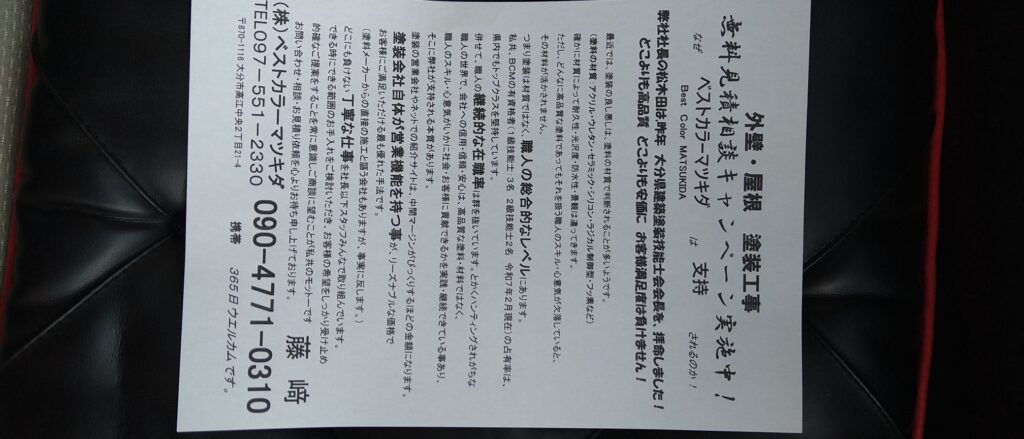 外壁・屋根 塗装工事
無料見積相談キャンペーン実施中!
なぜ ベストカラーマツキダ は 支持 されるのか!
Best Color MATSUKIDA
弊社社長の松木田は昨年 大分県建築塗装技能士会会長を、拝命しました!
どこよりも高品質 どこよりも安価に お客様満足度は負けません!
最近では、塗装の良し悪しは、塗料の材質で判断されることが多いようです。
(塗料の材質：アクリル・ウレタン・セラミック・シリコン・ラジカル制御型・フッ素など)
確かに材質によって耐久性・光沢度・防水性・景観は違ってきます。
ただし、どんなに高品質な塗料であってもそれを扱う職人のスキル・心意気が欠落していると、
その材料が活かされません。
つまり塗装は材質ではなく、職人の総合的なレベルにあります。
私共、BCMの有資格者(1級技能士：3名 2級技能士2名 令和7年2月現在)の占有率は、
県内でもトップクラスを堅持しています。
併せて、職人の継続的な在職率は群を抜いています。とかくハンティングされがちな
職人の世界で、会社への信用・信頼・安心は、高品質な塗料・材料ではなく、
職人のスキル・心意気がいかに社会・お客様に貢献できるかを実践・継続できている事あり、
そこに弊社が支持される本質があります。
塗装の営業会社やネットでの紹介サイトは、中間マージンがびっくりするほどの金額になります。
塗装会社自体が営業機能を持つ事が、リーズナブルな価格で
お客様にご満足いただける最も優れた手法です。
(塗料メーカーからの直接の施工と謳う会社もありますが、事実に反します。)
どこにも負けない丁寧な仕事を社長以下スタッフみんなで取り組んでいます。
できる時にできる範囲のお手入れをご検討いただき、お客様の希望をしっかり受け止め
的確なご提案をすることを常に意識しご商談に望むことが私共のモットーです
お問い合わせ・相談・お見積り依頼を心よりお待ち申し上げております。
(株)ベストカラーマツキダ 藤﨑
TEL097-551-2330 携帯 090-4771-0310
〒870-1116 大分市高江中央2丁目21-4 365日ウエルカムです。